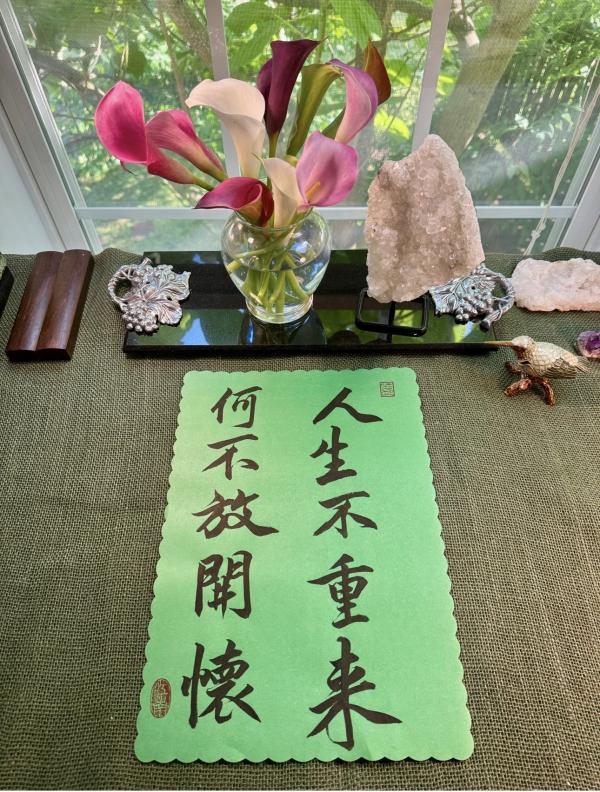 人生不重来
何不放開懷